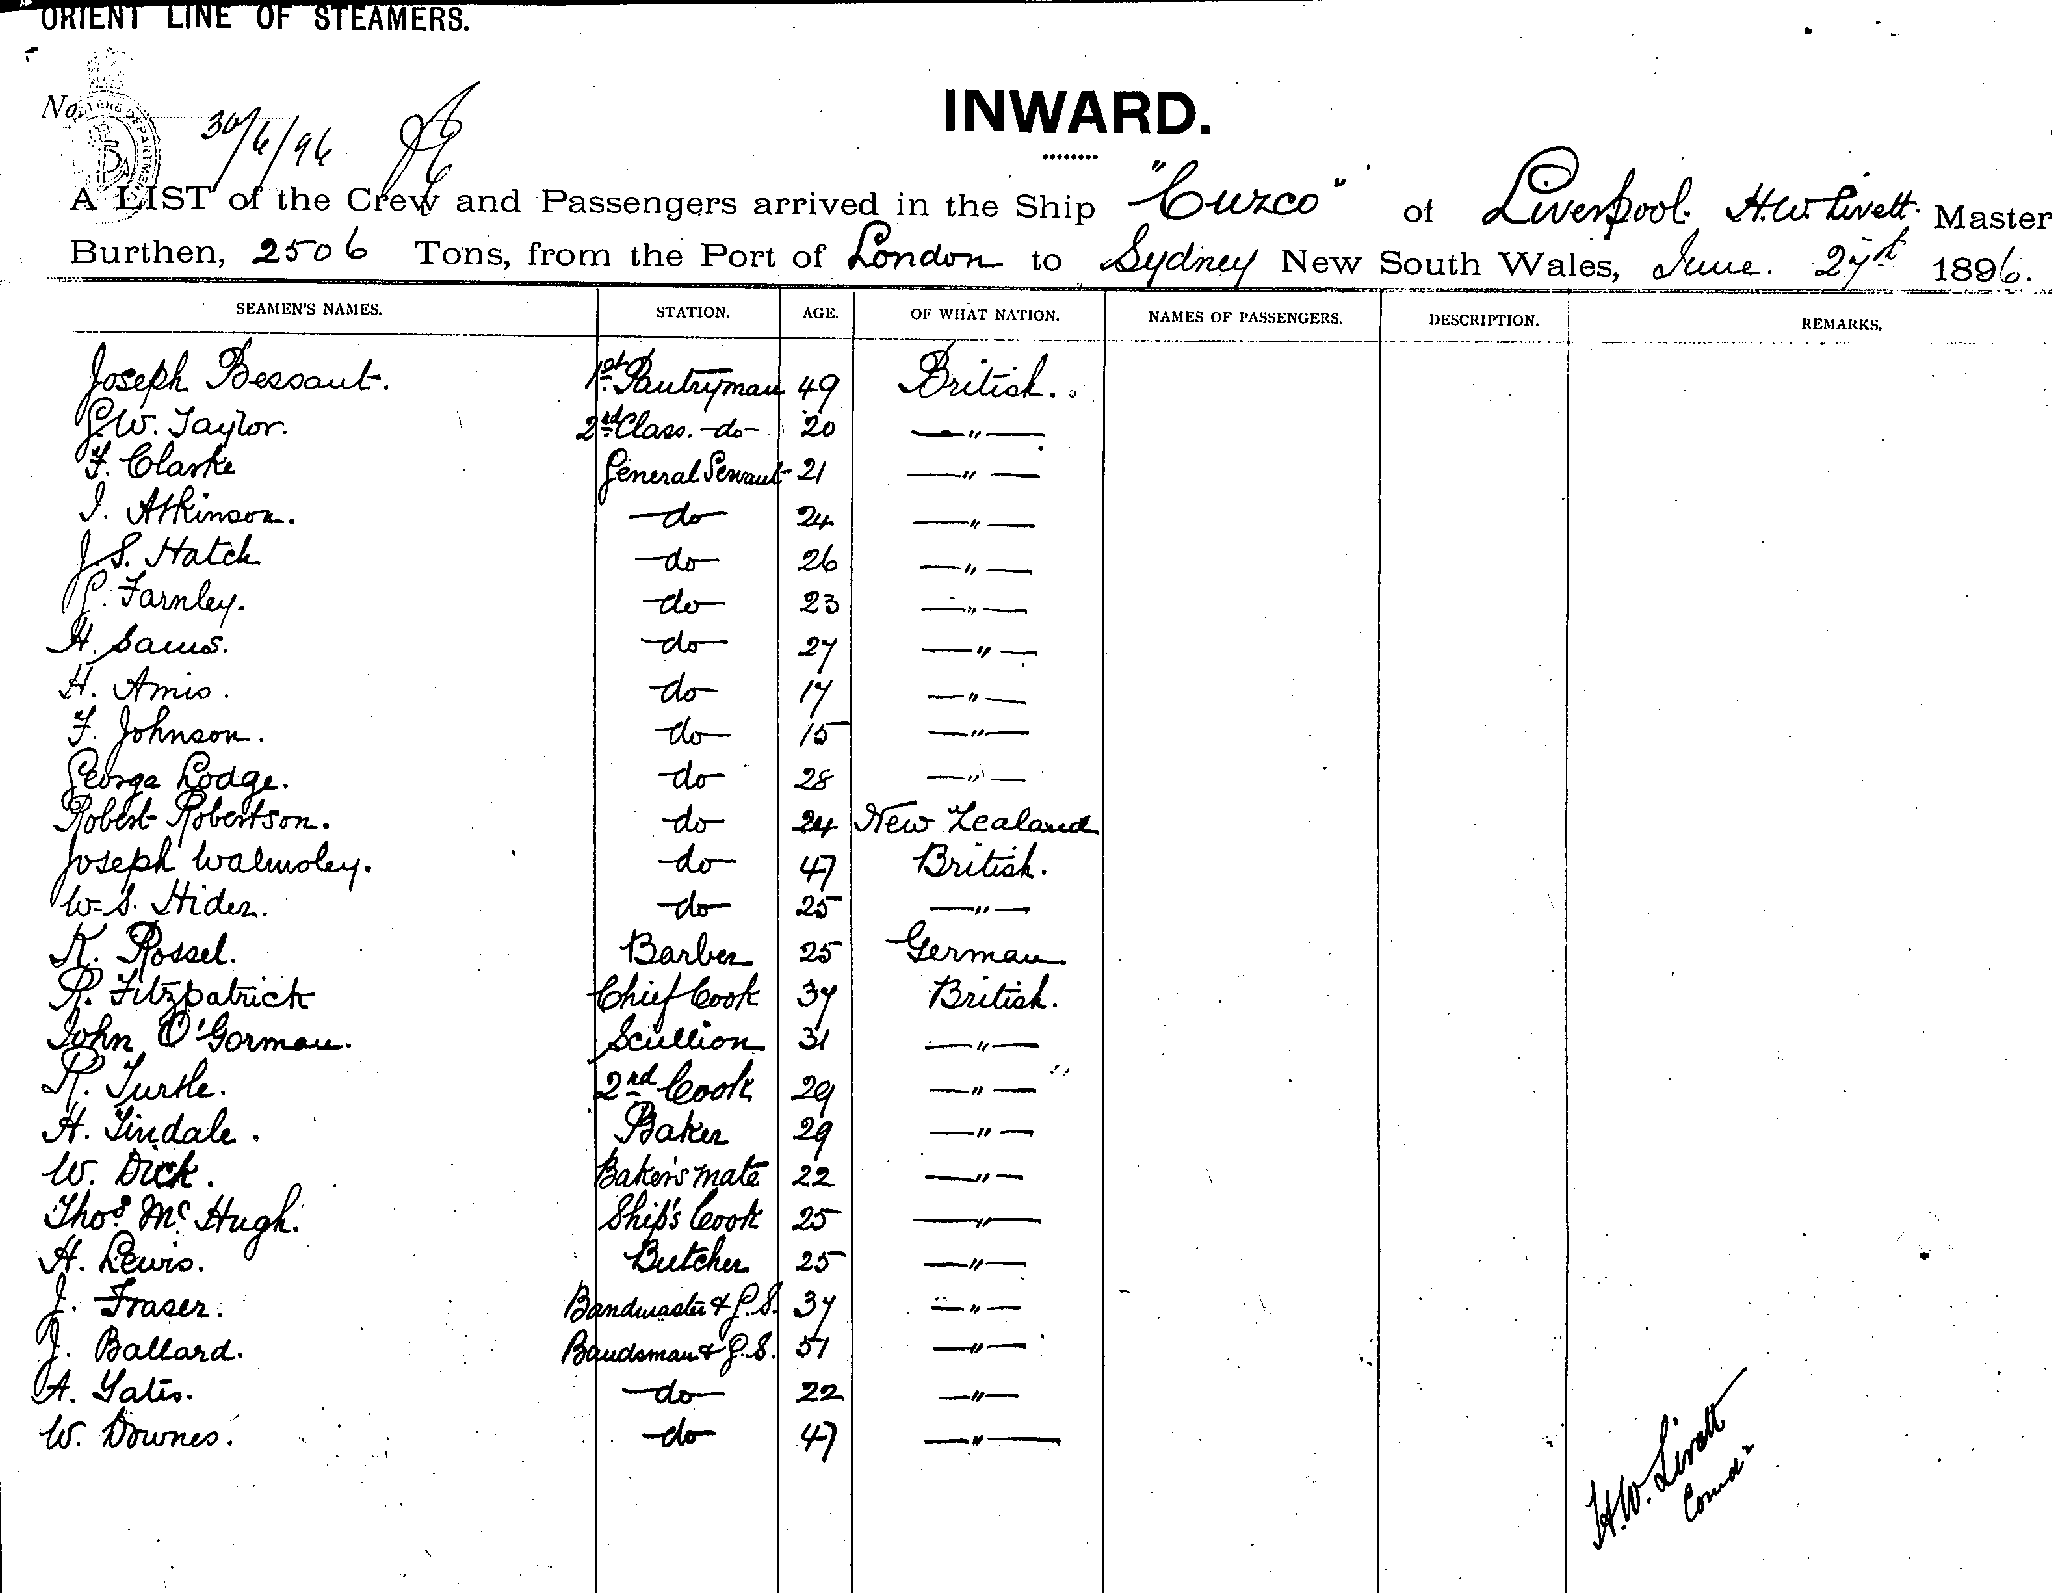 ORIENT LINE OF STEAMERS.
No.
30/6/96
INWARD.
A LIST of the Crew and Passengers arrived in the Ship "Cuzco" of Liverpool. H.W. Livett. Master
Burthen, 2506 Tons, from the Port of London to Sydney New South Wales, June. 27th 1896.
SEAMEN'S NAMES. STATION. AGE. OF WHAT NATION. NAMES OF PASSENGERS. DESCRIPTION. REMARKS.
Joseph Bessant. 1st Pantryman 49 British.
G.W. Taylor. 2nd Class. -do- 20 —"—
F. Clarke General Servant 21 —"—
J. Atkinson. —do— 24 —"—
J.S. Hatch —do— 26 —"—
G. Farnley. —do— 23 —"—
H. Sams. —do— 27 —"—
H. Amis. —do— 17 —"—
F. Johnson. —do— 15 —"—
George Lodge. —do— 28 —"—
Robert Robertson. —do— 24 New Zealand
Joseph Walmsley. —do— 47 British.
W.S. Hider. —do— 25 —"—
K. Rossel. Barber 25 German
R. Fitzpatrick Chief Cook 37 British.
John O'Gorman. Scullion 31 —"—
R. Turtle. 2nd Cook 29 —"—
H. Tindale. Baker 29 —"—
W. Dick. Baker's mate 22 —"—
Thos. Mc Hugh. Ship's Cook 25 —"—
H. Lewis. Butcher 25 —"—
J. Fraser. Bandmaster & G.S. 37 —"—
J. Ballard. Bandsman & G.S. 51 —"—
A. Yates. —do— 22 —"—
W. Downes. —do— 47 —"—
H.W. Livett
Comdr